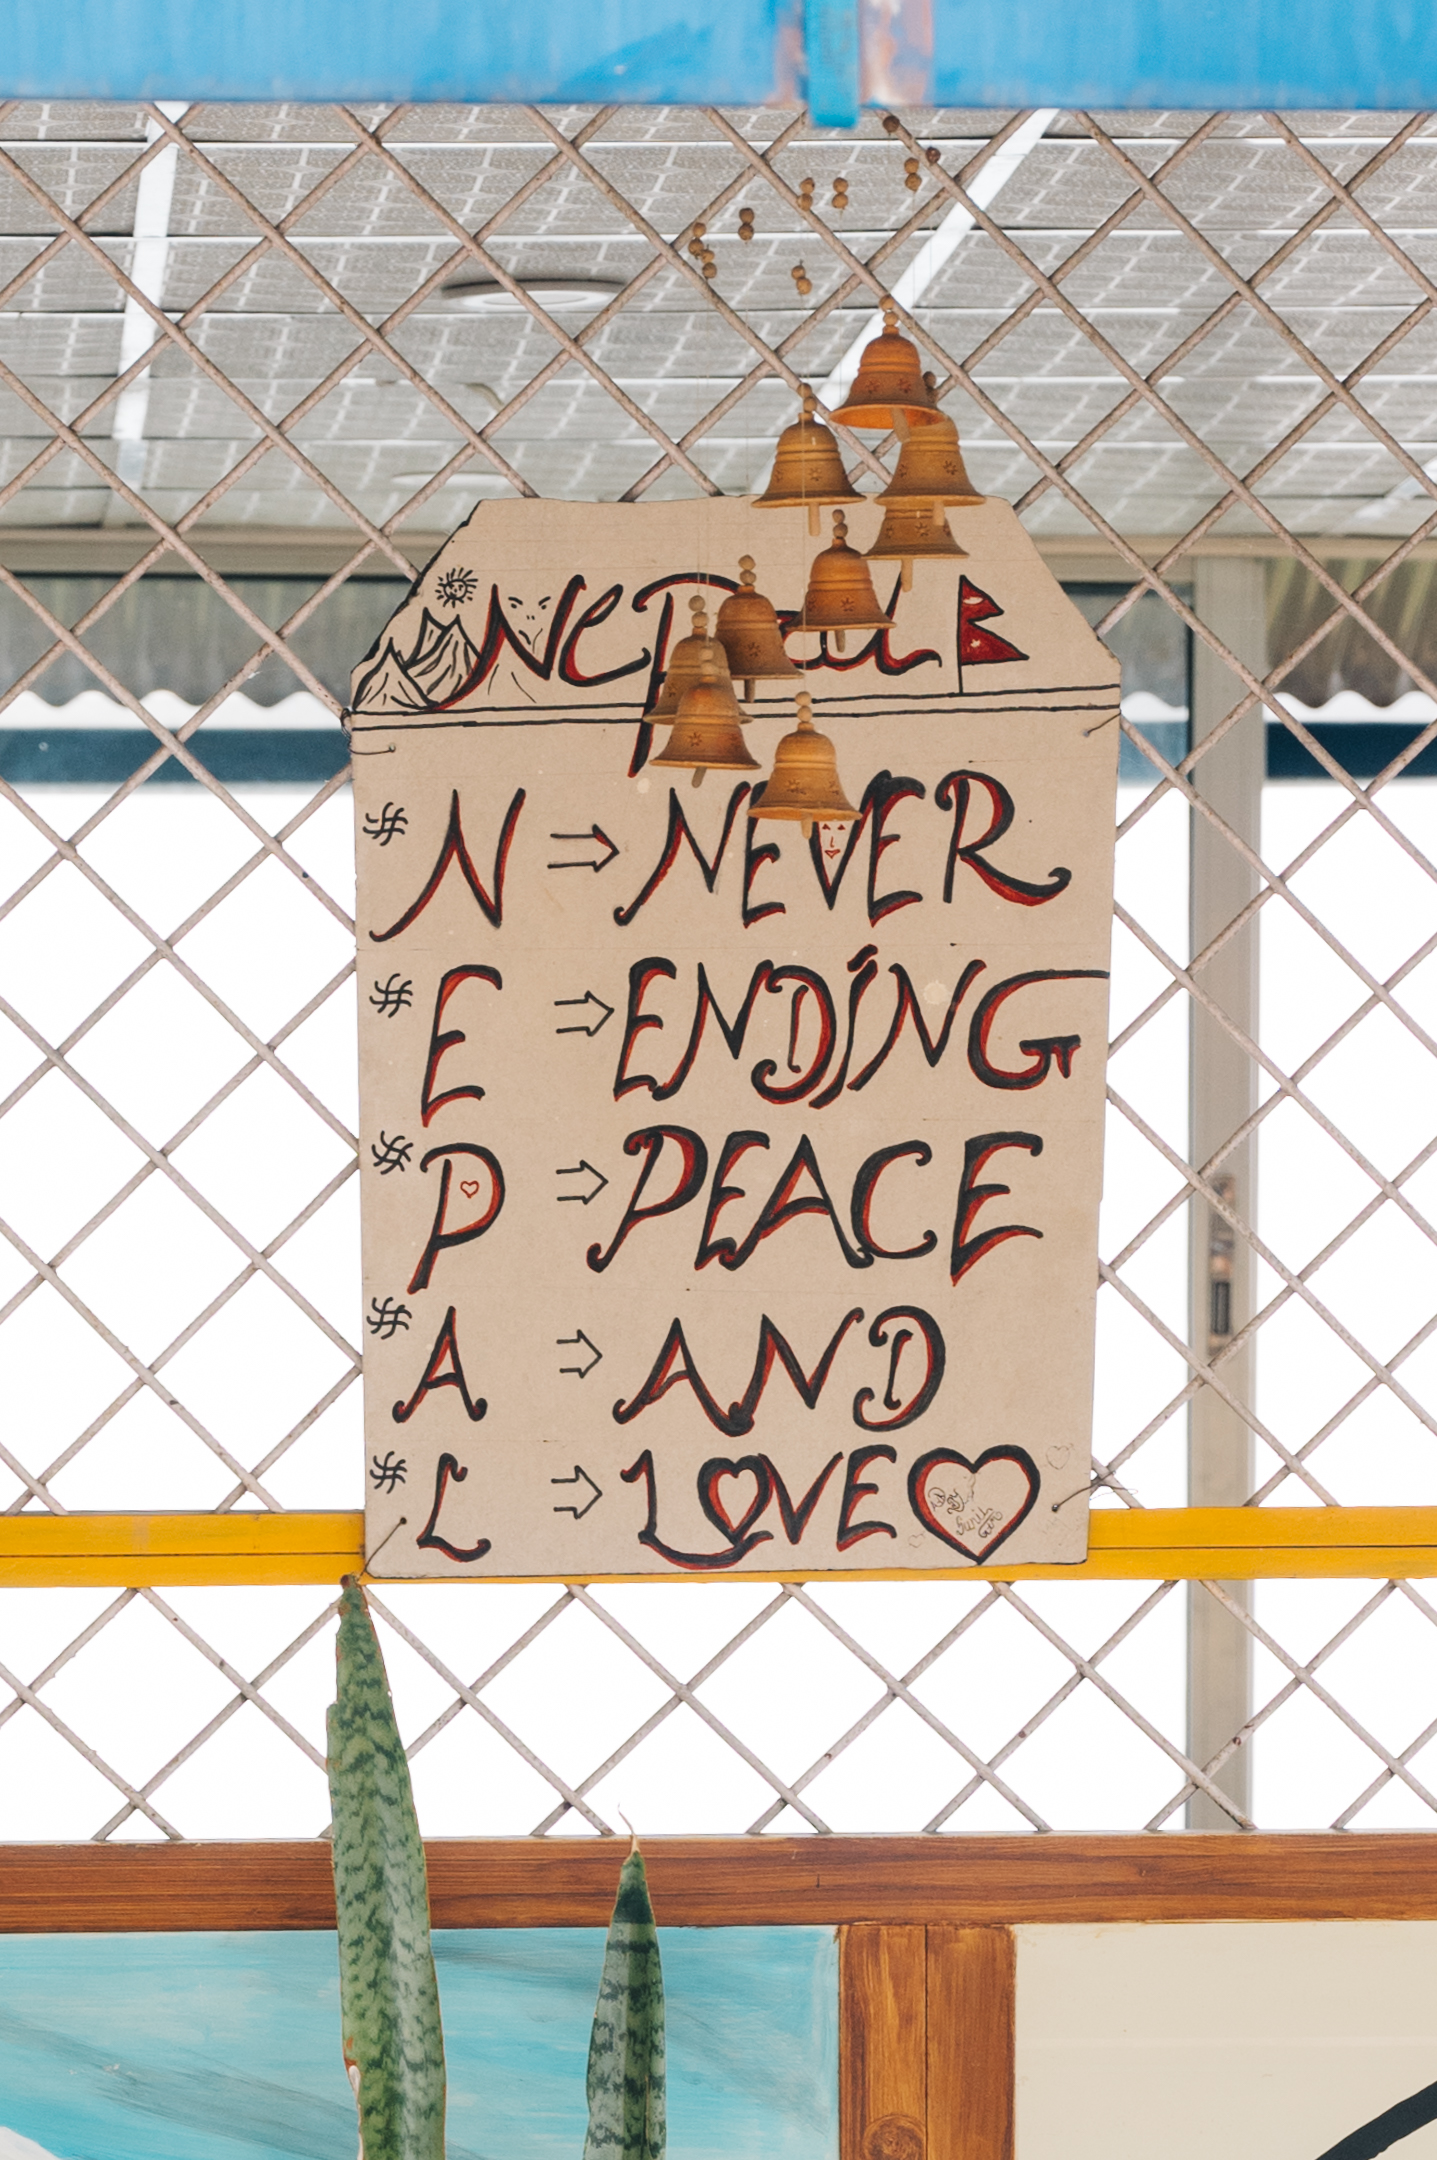 Nepal
# N ⇒ NEVER
# E ⇒ ENDING
# P ⇒ PEACE
# A ⇒ AND
# L ⇒ LOVE